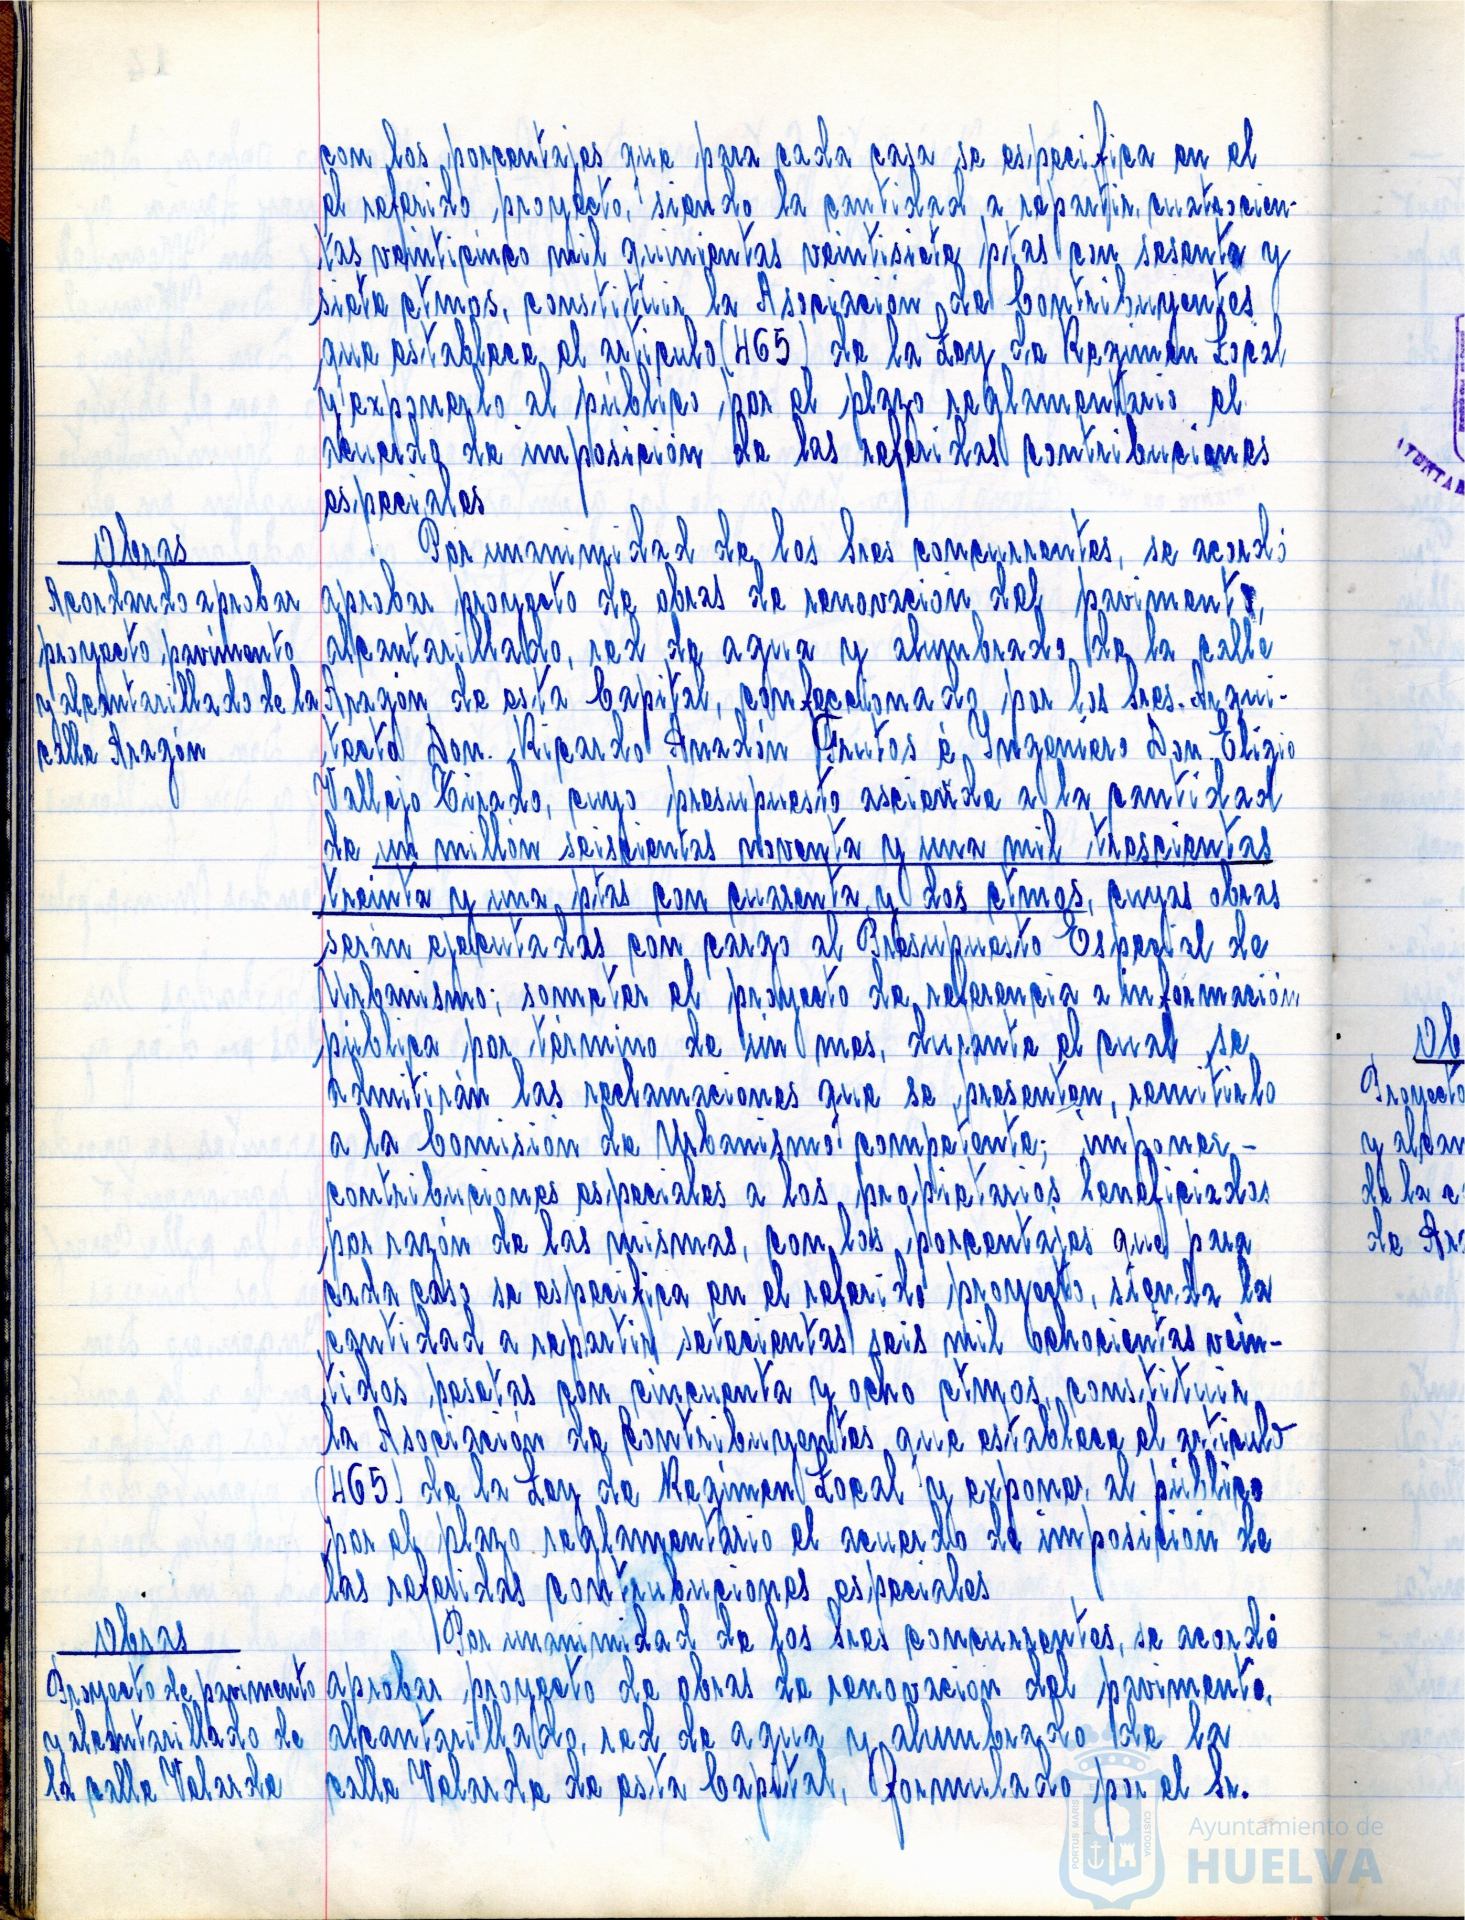 con los porcentajes que para cada casa se especifica en el
el referido proyecto, siendo la cantidad a repartir, cuatrocien-
tas veinticinco mil quinientas veintisiete ptas con sesenta y
siete ctmos, constituir la Asociación de Contribuyentes
que establece el artículo (465) de la Ley de Regimen Local
y exponerlo al público por el plazo reglamentario el
acuerdo de imposición de las referidas contribuciones
especiales
Obras
Acordando aprobar
proyecto pavimento
y alcantarillado de la
calle Aragón
Por unanimidad de los Sres concurrentes, se acordó
aprobar proyecto de obras de renovación del pavimento,
alcantarillado, red de agua y alumbrado de la calle
Aragón de esta Capital, confeccionado por los Sres. Arqui-
tecto Don. Ricardo Anadón Frutos é Ingeniero Don Eligio
Vallejo Tirado, cuyo presupuesto asciende a la cantidad
de un millón seiscientas noventa y una mil trescientas
treinta y una ptas con cuarenta y dos ctmos, cuyas obras
serán ejecutadas con cargo al Presupuesto Especial de
Urbanismo; someter el proyecto de referencia a información
pública por término de un mes, durante el cual se
admitirán las reclamaciones que se presenten, remitirlo
a la Comisión de Urbanismo competente; imponer-
contribuciones especiales a los propietarios beneficiados
por razón de las mismas, con los porcentajes que para
cada caso se especifica en el referido proyecto, siendo la
cantidad a repartir setecientas seis mil ochocientas vein-
tidos pesetas con cincuenta y ocho ctmos, constituir
la Asociación de Contribuyentes que establece el artículo
(465) de la Ley de Regimen Local y exponer al público
por el plazo reglamentario el acuerdo de imposición de
las referidas contribuciones especiales
Obras
Proyecto de pavimento
y alcantarillado de
la calle Velarde
Por unanimidad de los Sres concurrentes, se acordó
aprobar proyecto de obras de renovación del pavimento,
alcantarillado, red de agua y alumbrado de la
calle Velarde de esta Capital, formulado por el Sr.
Ob
Proyecto
y alcan
de la c
de Ara
PORTUS MARIS
CUSTODIA
Ayuntamiento de
HUELVA